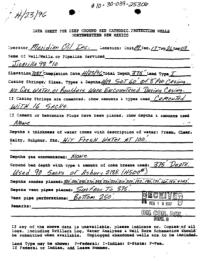 # 30-039-25308
4/23/96
DATA SHEET FOR DEEP GROUND BED CATHODIC PROTECTION WELLS
NORTHWESTERN NEW MEXICO
Operator Meridian Oil Inc. Location:
Name of Well/Wells or Pipeline Serviced
Jicarilla 98 #10
Elevation Completion Date 4/23/96 Total Depth 375' Land Type I
Casing Strings, Sizes, Types & Depths Set 60' of 8" PVC Casing.
No Gas, Water, or Boulders Were Encountered During Casing.
If Casing Strings are cemented, show amounts & types used Cemented
With 16 Sacks.
If Cement or Bentonite Plugs have been placed, show depths & amounts used
None
Depths & thickness of water zones with description of water: Fresh, Clear,
Salty, Sulphur, Etc. Hit Fresh Water At 100'.
Depths gas encountered: None
Ground bed depth with type & amount of coke breeze used: 375' Depth.
Used 90 Sacks of Asbury 218R (4500#)
Depths anodes placed:
Depths vent pipes placed: Surface To 375'.
Vent pipe perforations: Bottom 250'.
Remarks:
RECEIVED
If any of the above data is unavailable, please indicate so. Copies of all
logs, including Drillers Log, Water Analyses & Well Bore Schematics should
be submitted when available. Unplugged abandoned wells are to be included.
Land Type may be shown: F-Federal; I-Indian; S-State; P-Fee.
If Federal or Indian, add Lease Number.